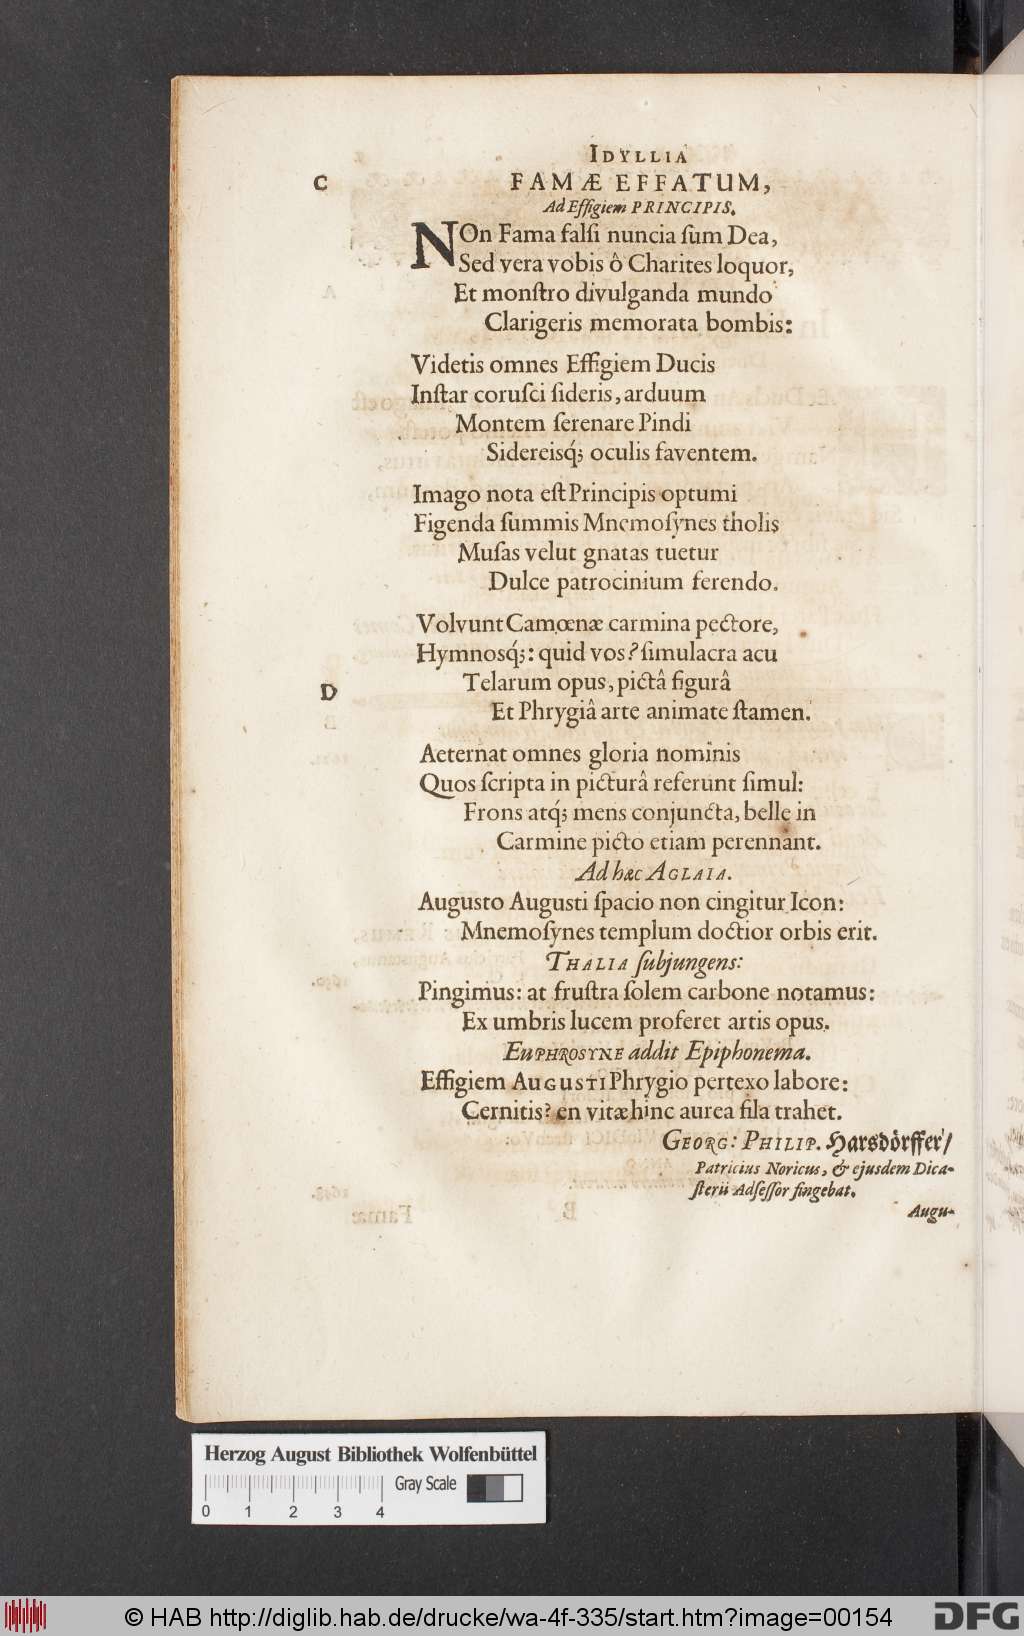 IDYLLIA
C
FAMÆ EFFATUM,
Ad Effigiem PRINCIPIS.
NOn Fama falſi nuncia ſum Dea,
Sed vera vobis ô Charites loquor,
Et monſtro divulganda mundo
Clarigeris memorata bombis:
Videtis omnes Effigiem Ducis
Inſtar coruſci ſideris, arduum
Montem ſerenare Pindi
Sidereisq́; oculis faventem.
Imago nota eſt Principis optumi
Figenda ſummis Mnemoſynes tholis
Muſas velut gnatas tuetur
Dulce patrocinium ferendo.
Volvunt Camœnæ carmina pectore,
Hymnosq́;: quid vos? ſimulacra acu
D
Telarum opus, pictâ figurâ
Et Phrygiâ arte animate ſtamen.
Aeternat omnes gloria nominis
Quos ſcripta in picturâ referunt ſimul:
Frons atq́; mens conjuncta, belle in
Carmine picto etiam perennant.
Ad hæc AGLAIA.
Augusto Augusti ſpacio non cingitur Icon:
Mnemoſynes templum doctior orbis erit.
THALIA ſubjungens:
Pingimus: at fruſtra ſolem carbone notamus:
Ex umbris lucem proferet artis opus.
EuPHROSYNE addit Epiphonema.
Effigiem AuGUSTI Phrygio pertexo labore:
Cernitis? en vitæ hinc aurea fila trahet.
GEORG: PHILIP. Harsdörffer/
Patricius Noricus, & ejusdem Dica-
ſterii Adſeſſor fingebat.
Augu-
Herzog August Bibliothek Wolfenbüttel
Gray Scale
0 1 2 3 4
© HAB http://diglib.hab.de/drucke/wa-4f-335/start.htm?image=00154
DFG